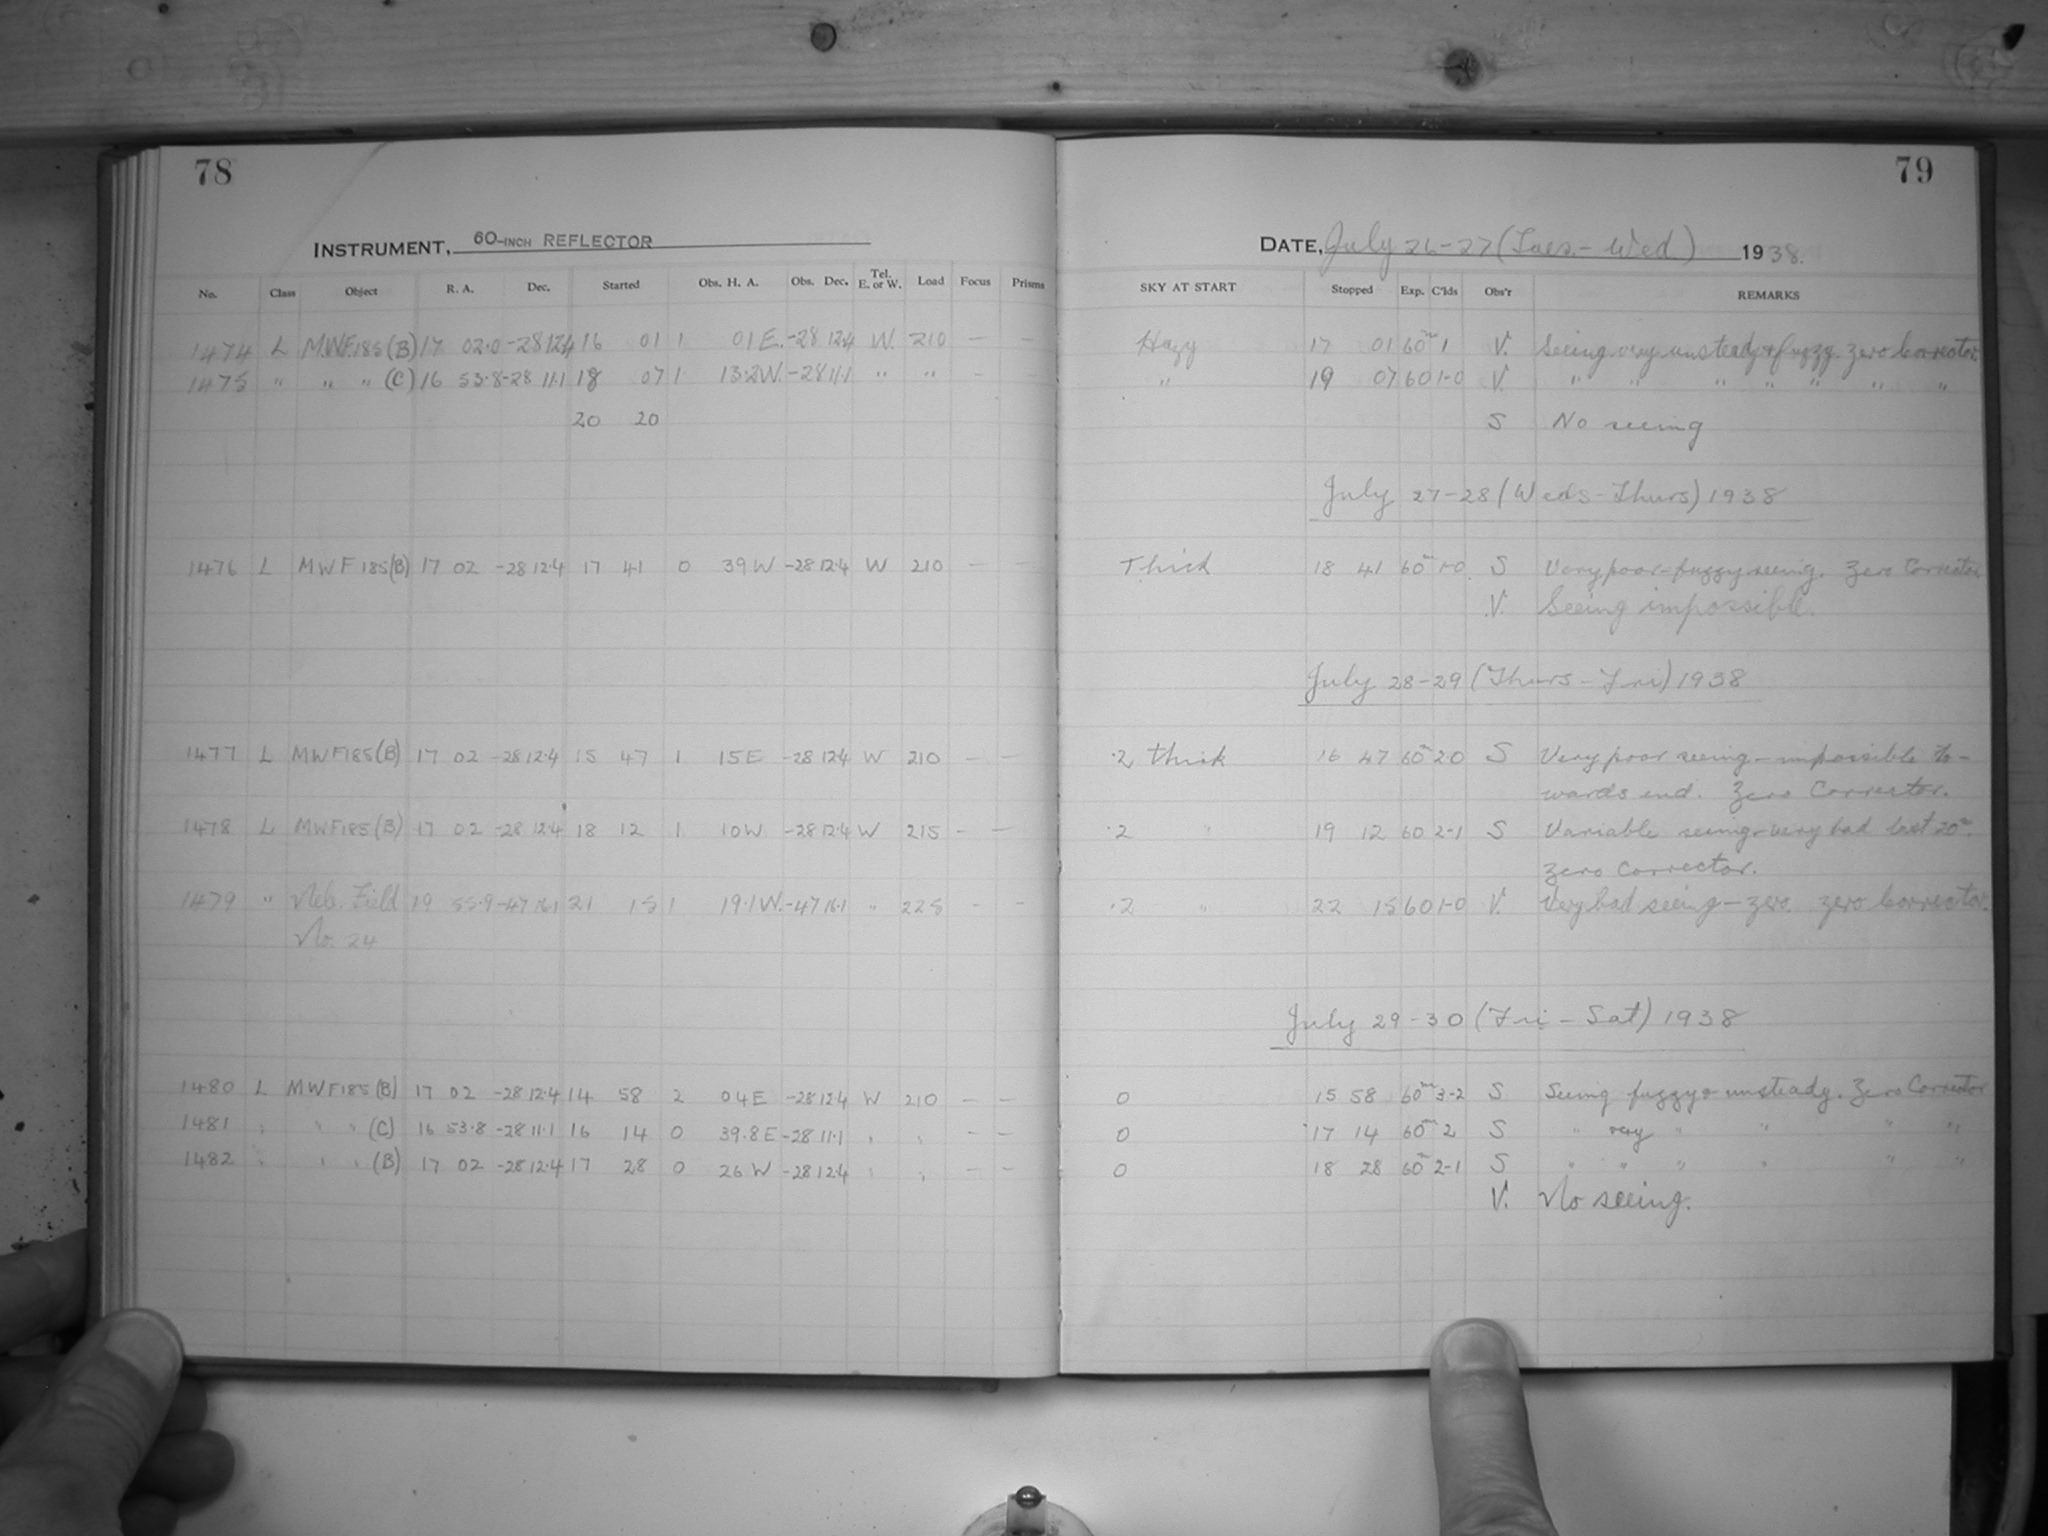 78
INSTRUMENT, 60-INCH REFLECTOR
No. Class Object R. A. Dec. Started Obs. H. A. Obs. Dec. Tel. E. or W. Load Focus Prisms
1474 L MWF185(B) 17 02.0 -28 12.4 16 01 1 01E. -28 12.4 W. 210 — —
1475 " " " (C) 16 53.8 -28 11.1 18 07 1 13.2W. -28 11.1 " " — —
20 20
1476 L MWF185(B) 17 02 -28 12.4 17 41 0 39W -28 12.4 W 210 — —
1477 L MWF185(B) 17 02 -28 12.4 15 47 1 15E -28 12.4 W 210 — —
1478 L MWF185(B) 17 02 -28 12.4 18 12 1 10W -28 12.4 W 215 — —
1479 " Neb. Field 19 55.9 -47 16.1 21 15 1 19.1W. -47 16.1 " 225 — —
No. 24
1480 L MWF185(B) 17 02 -28 12.4 14 58 2 04E -28 12.4 W 210 — —
1481 " " " (C) 16 53.8 -28 11.1 16 14 0 39.8E -28 11.1 " " — —
1482 " " " (B) 17 02 -28 12.4 17 28 0 26W -28 12.4 " " — —
79
DATE, July 26-27 (Tues.-Wed) 1938.
SKY AT START Stopped Exp. C'lds Obs'r REMARKS
Hazy 17 01 60m 1 V. Seeing very unsteady & fuzzy. Zero Corrector
" 19 07 60 1-0 V. " " " " " " "
S No seeing
July 27-28 (Weds-Thurs) 1938
Thick 18 41 60m 1-0 S Very poor-fuzzy seeing. Zero Corrector
V. Seeing impossible.
July 28-29 (Thurs-Fri) 1938
.2 Thick 16 47 60m 2-0 S Very poor seeing - impossible to-
wards end. Zero Corrector.
.2 " 19 12 60 2-1 S Variable seeing-very bad last 20m.
Zero Corrector.
.2 " 22 15 60 1-0 V. Very bad seeing - zero. Zero Corrector.
July 29-30 (Fri-Sat) 1938
0 15 58 60m 3-2 S Seeing fuzzy & unsteady. Zero Corrector
0 17 14 60m 2 S " very " " " "
0 18 28 60m 2-1 S " " " " " "
V. No seeing.